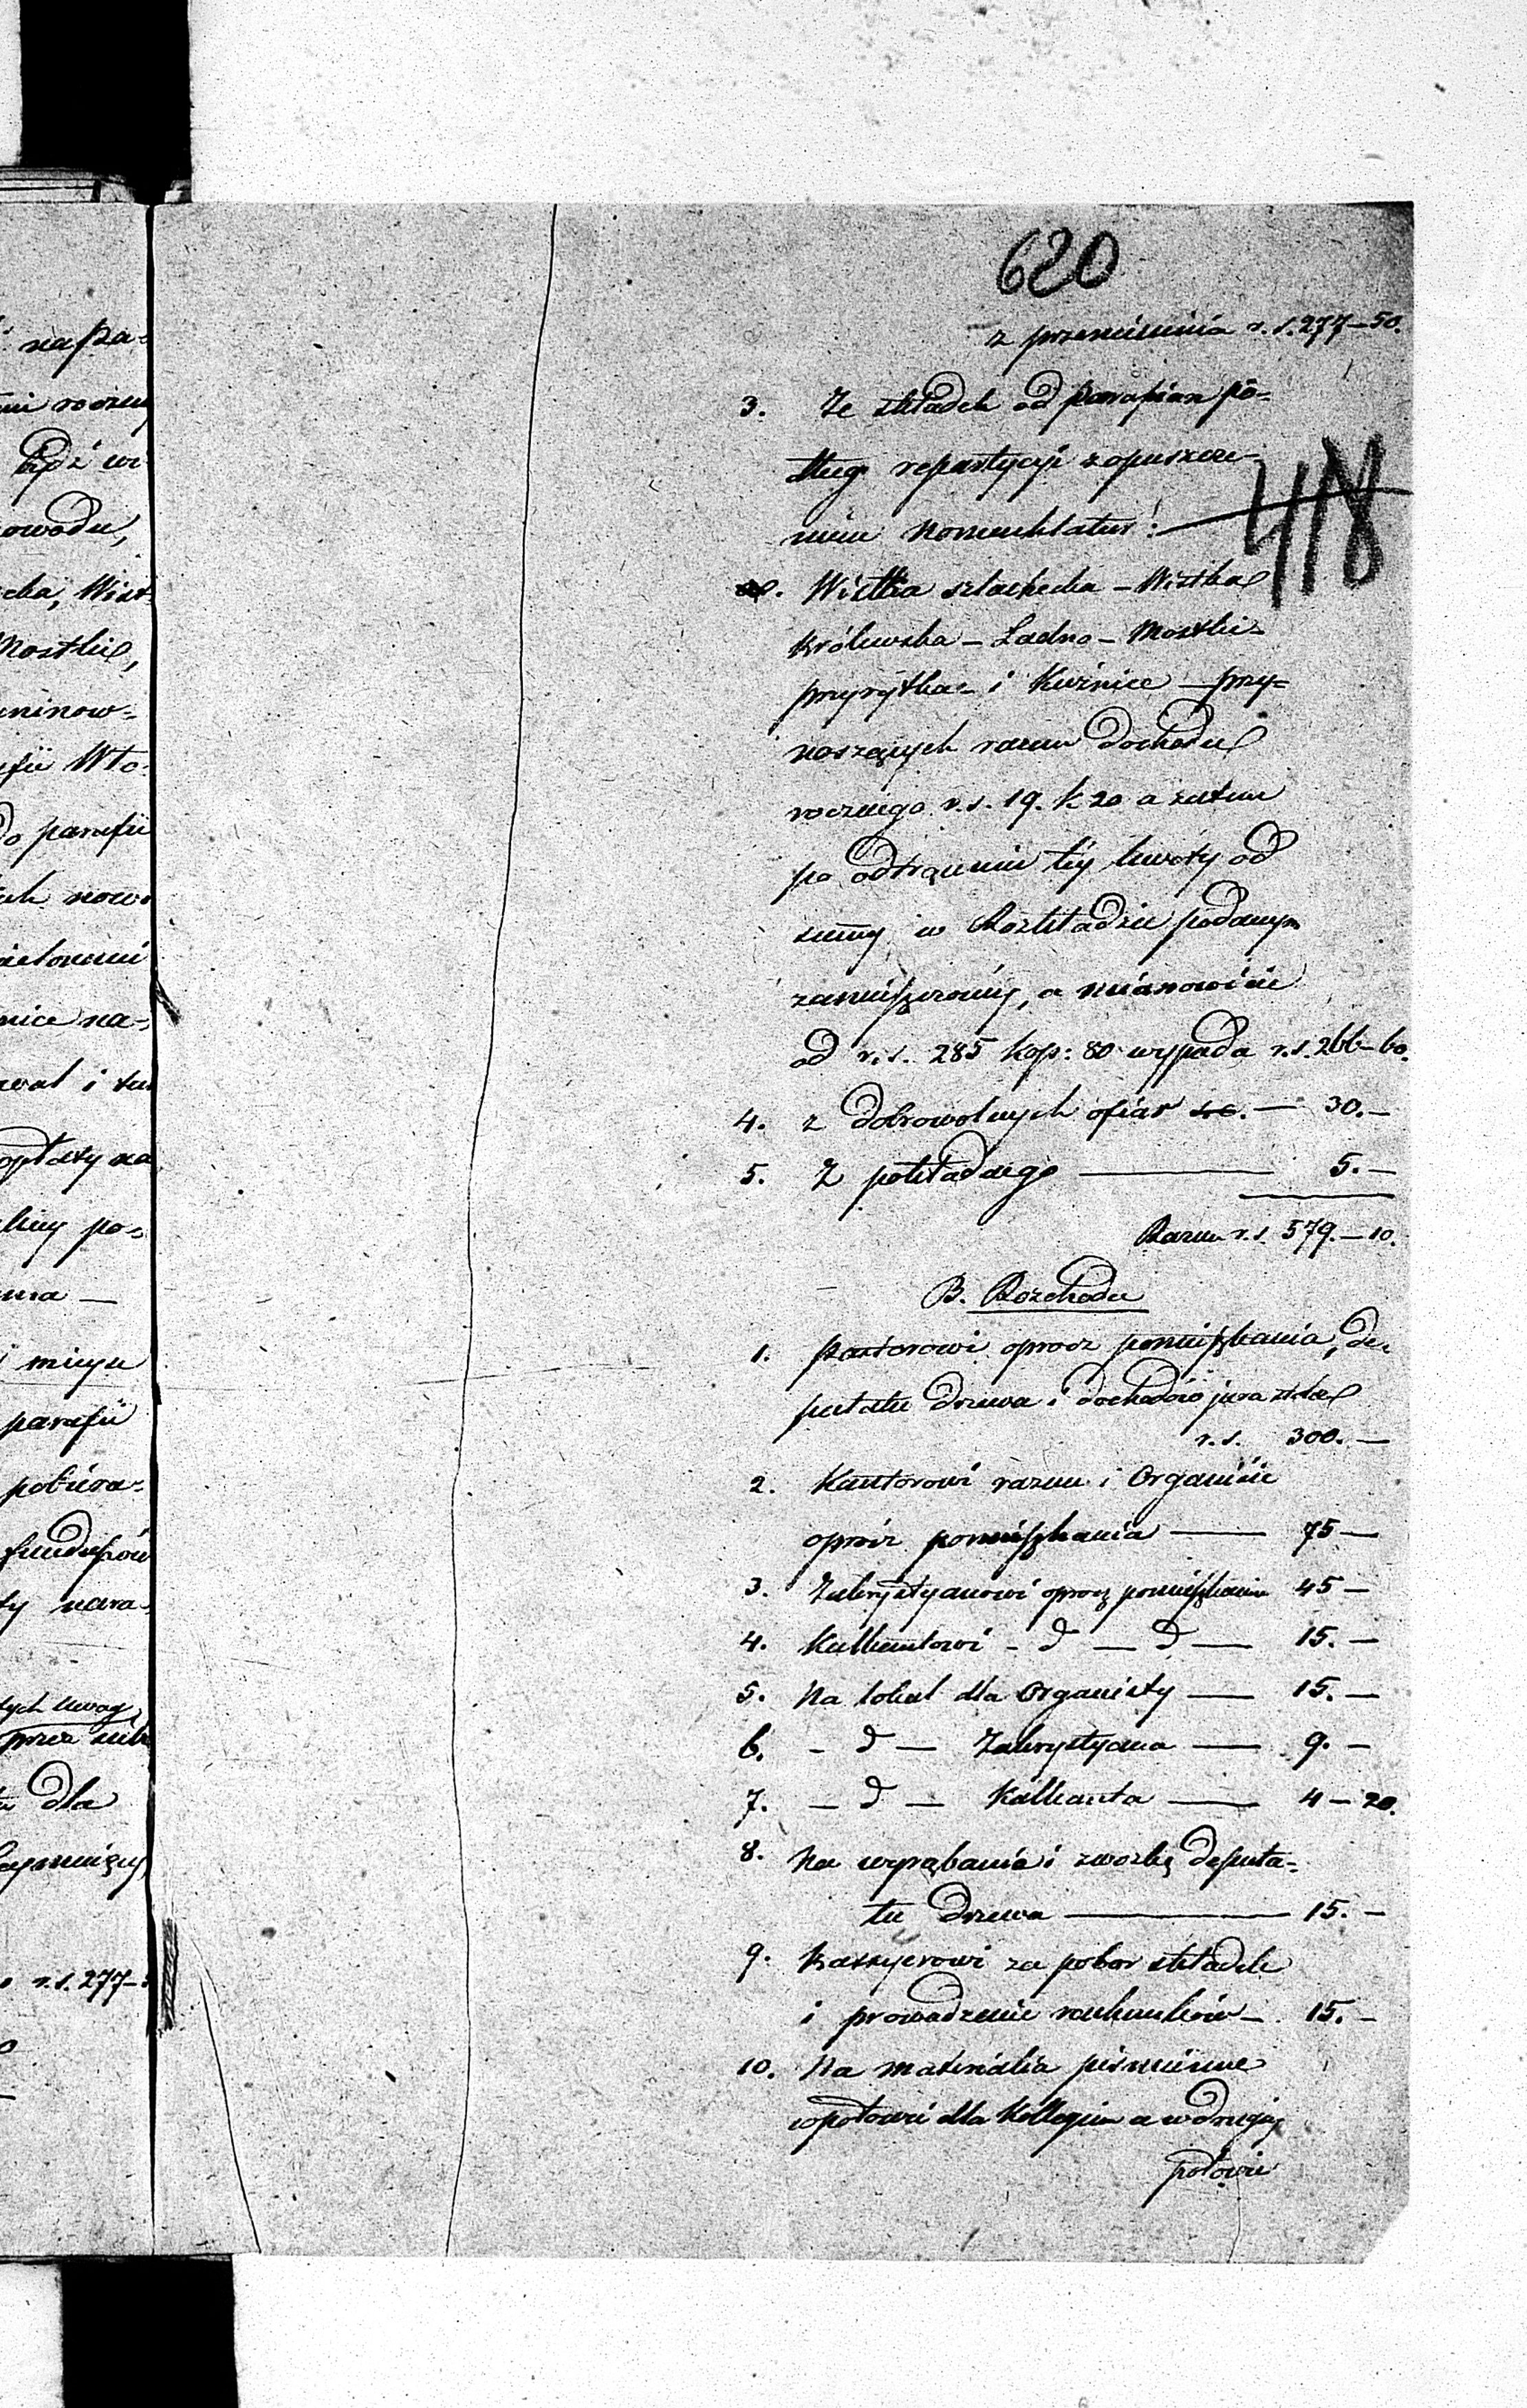 620
z przeniesienia r. s. 277–50.
3. Ze składek od parafian po-
dług repartycyi zopuszcze-
niem nomenklatur:
418
a. Wistka szlachecka – Wistka
królewska – Ładno – Mostki
przyrytka – i Kuźnice – przy-
noszących razem dochodu
rocznego r. s. 19. k. 20 a zatem
po odtrąceniu téj kwoty od
summy w Rozkładzie podanym
zamieszczonéj, a mianowicie
od r. s. 285 kop: 80 wypada r. s. 266–60.
4. z dobrowolnych ofiar — 30.—
5. Z pokładnego — 5.—
Razem r. s. 579.–10.
B. Rozchodu
1. pastorowi oprocz pomieszkania, de-
putatu drzewa i dochodów jura stolae
r. s. 300.—
2. Kantorowi razem i Organiście
oprócz pomieszkania — 75—
3. Zakrystyanowi oprocz pomieszkania 45—
4. Kalkantowi – d — d — 15.—
5. Na lokal dla Organisty — 15.—
6. – d — Zakrystyana — 9.—
7. – d — Kalkanta — 4–20.
8. Na wyrąbania i zwozkę deputa-
tu drzewa — 15.—
9. Kassyerowi za pobor składek
i prowadzenie rachunków — 15.—
10. Na materialia piśmienne
wpołowie dla Kollegium a wdrugiéj
połowie
napra-
bądź wi
owodu,
Mostki,
Wło-
do parafii
nowo
nice na-
opłaty na
po-
parafii
pobiera-
funduszów
tych uwag
przez
dla
r. s. 277–